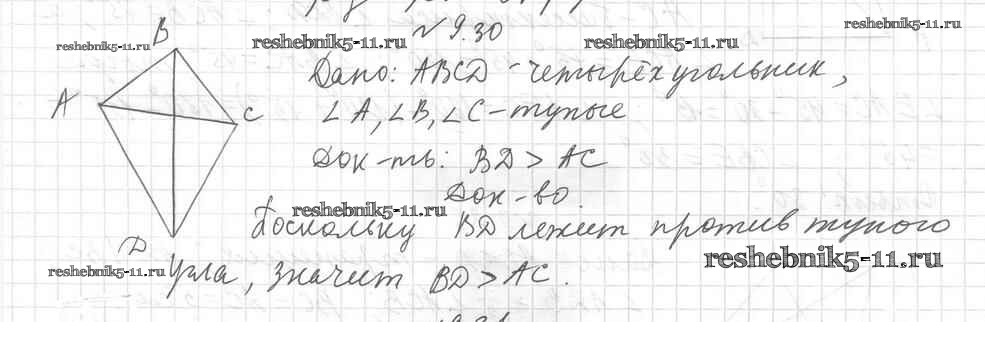 № 9.30
reshebnik5-11.ru
reshebnik5-11.ru
reshebnik5-11.ru
reshebnik5-11.ru
B
A
C
D
Дано: ABCD - четырёхугольник,
∠A, ∠B, ∠C - тупые
Док-ть: BD > AC
Док-во.
reshebnik5-11.ru
Поскольку BD лежит против тупого
reshebnik5-11.ru
reshebnik5-11.ru
угла, значит BD > AC.